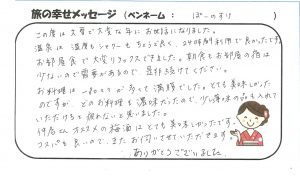 旅の幸せメッセージ (ペンネーム : ぽーのすけ )
この度は大変で大変な年にお世話になりました。
温泉は温度もシャワーもちょうど良く、24時間利用で良かったです。
お部屋食で大変リラックスできました。朝食もお部屋の宿は
少ないので需要があるので、是非続けてください。
お料理は一品一品が多くて満腹でした。とても美味しかった
のですが、どのお料理も濃味だったので、少し薄味の品も入れて
いただけると疲れないと思いました。
仲居さんオススメの梅酒はとても美味しかったです。
コスパも良いので、またお伺いさせていただきます。
ありがとうございました。